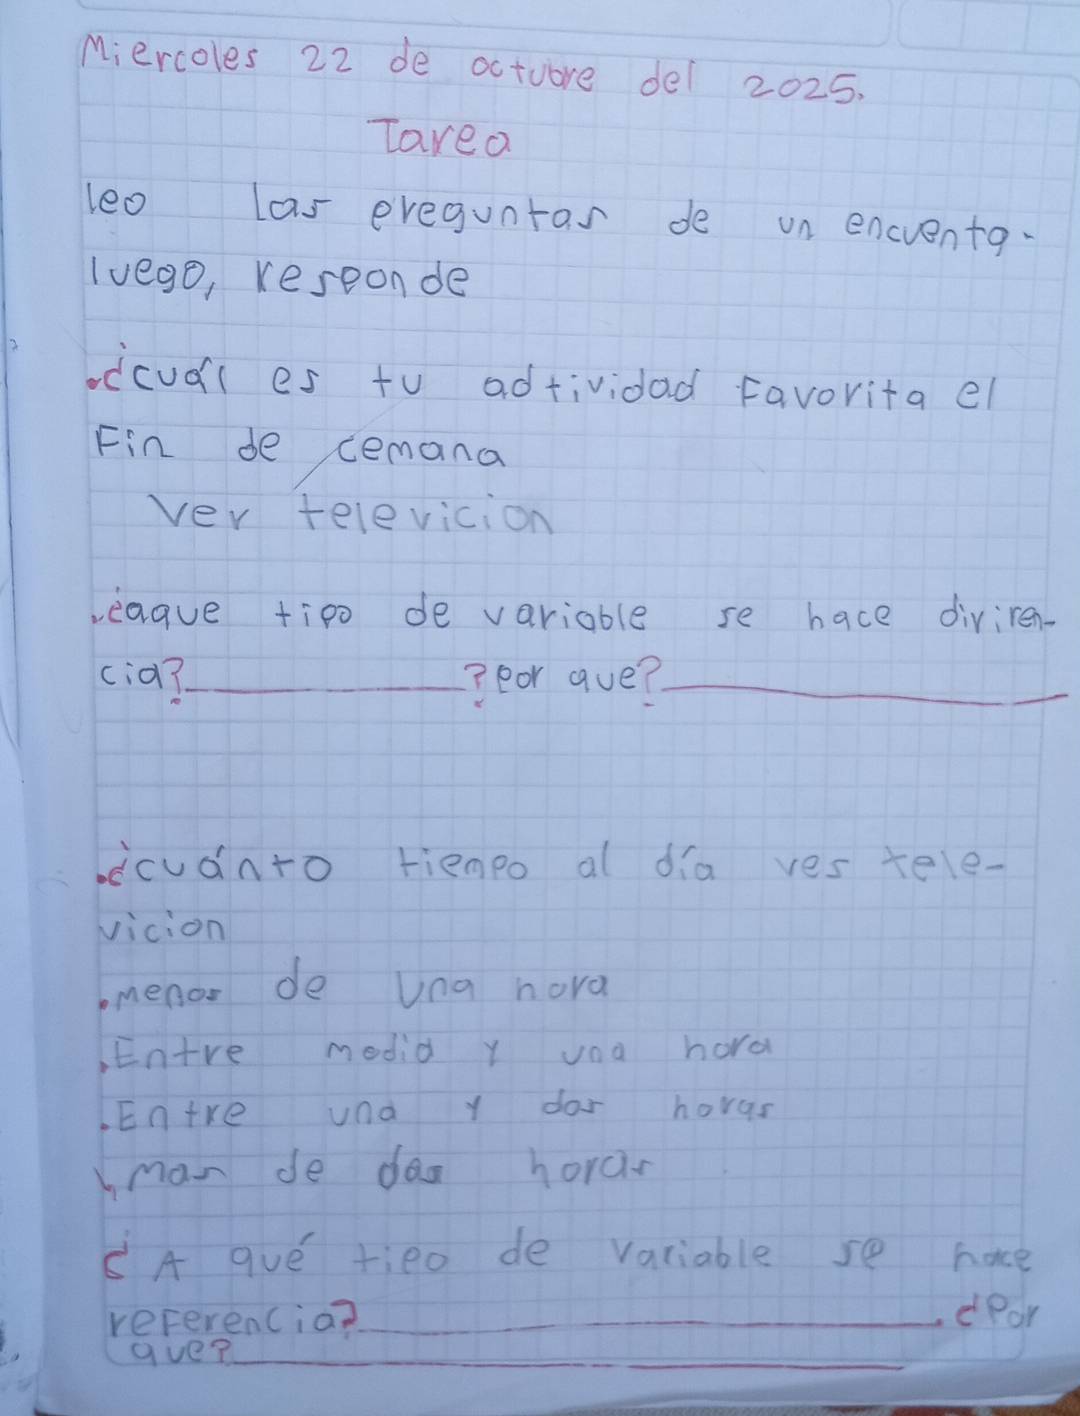 Miercoles 22 de octubre del 2025.
Tarea
leo las preguntas de un encuenta.
luego, responde
.¿cuál es tu adtividad Favorita el
Fin de cemana
Ver televicion
.¿aque tipo de variable se hace diviren-
cia? ? por que?
.¿cuánto tienpo al día ves tele-
vicion
.menos de una hora
.Entre media y una hora
.Entre una y dos horas
.mas de dos horas
¿A qué tipo de variable se hace
referencia? .¿Por
que?